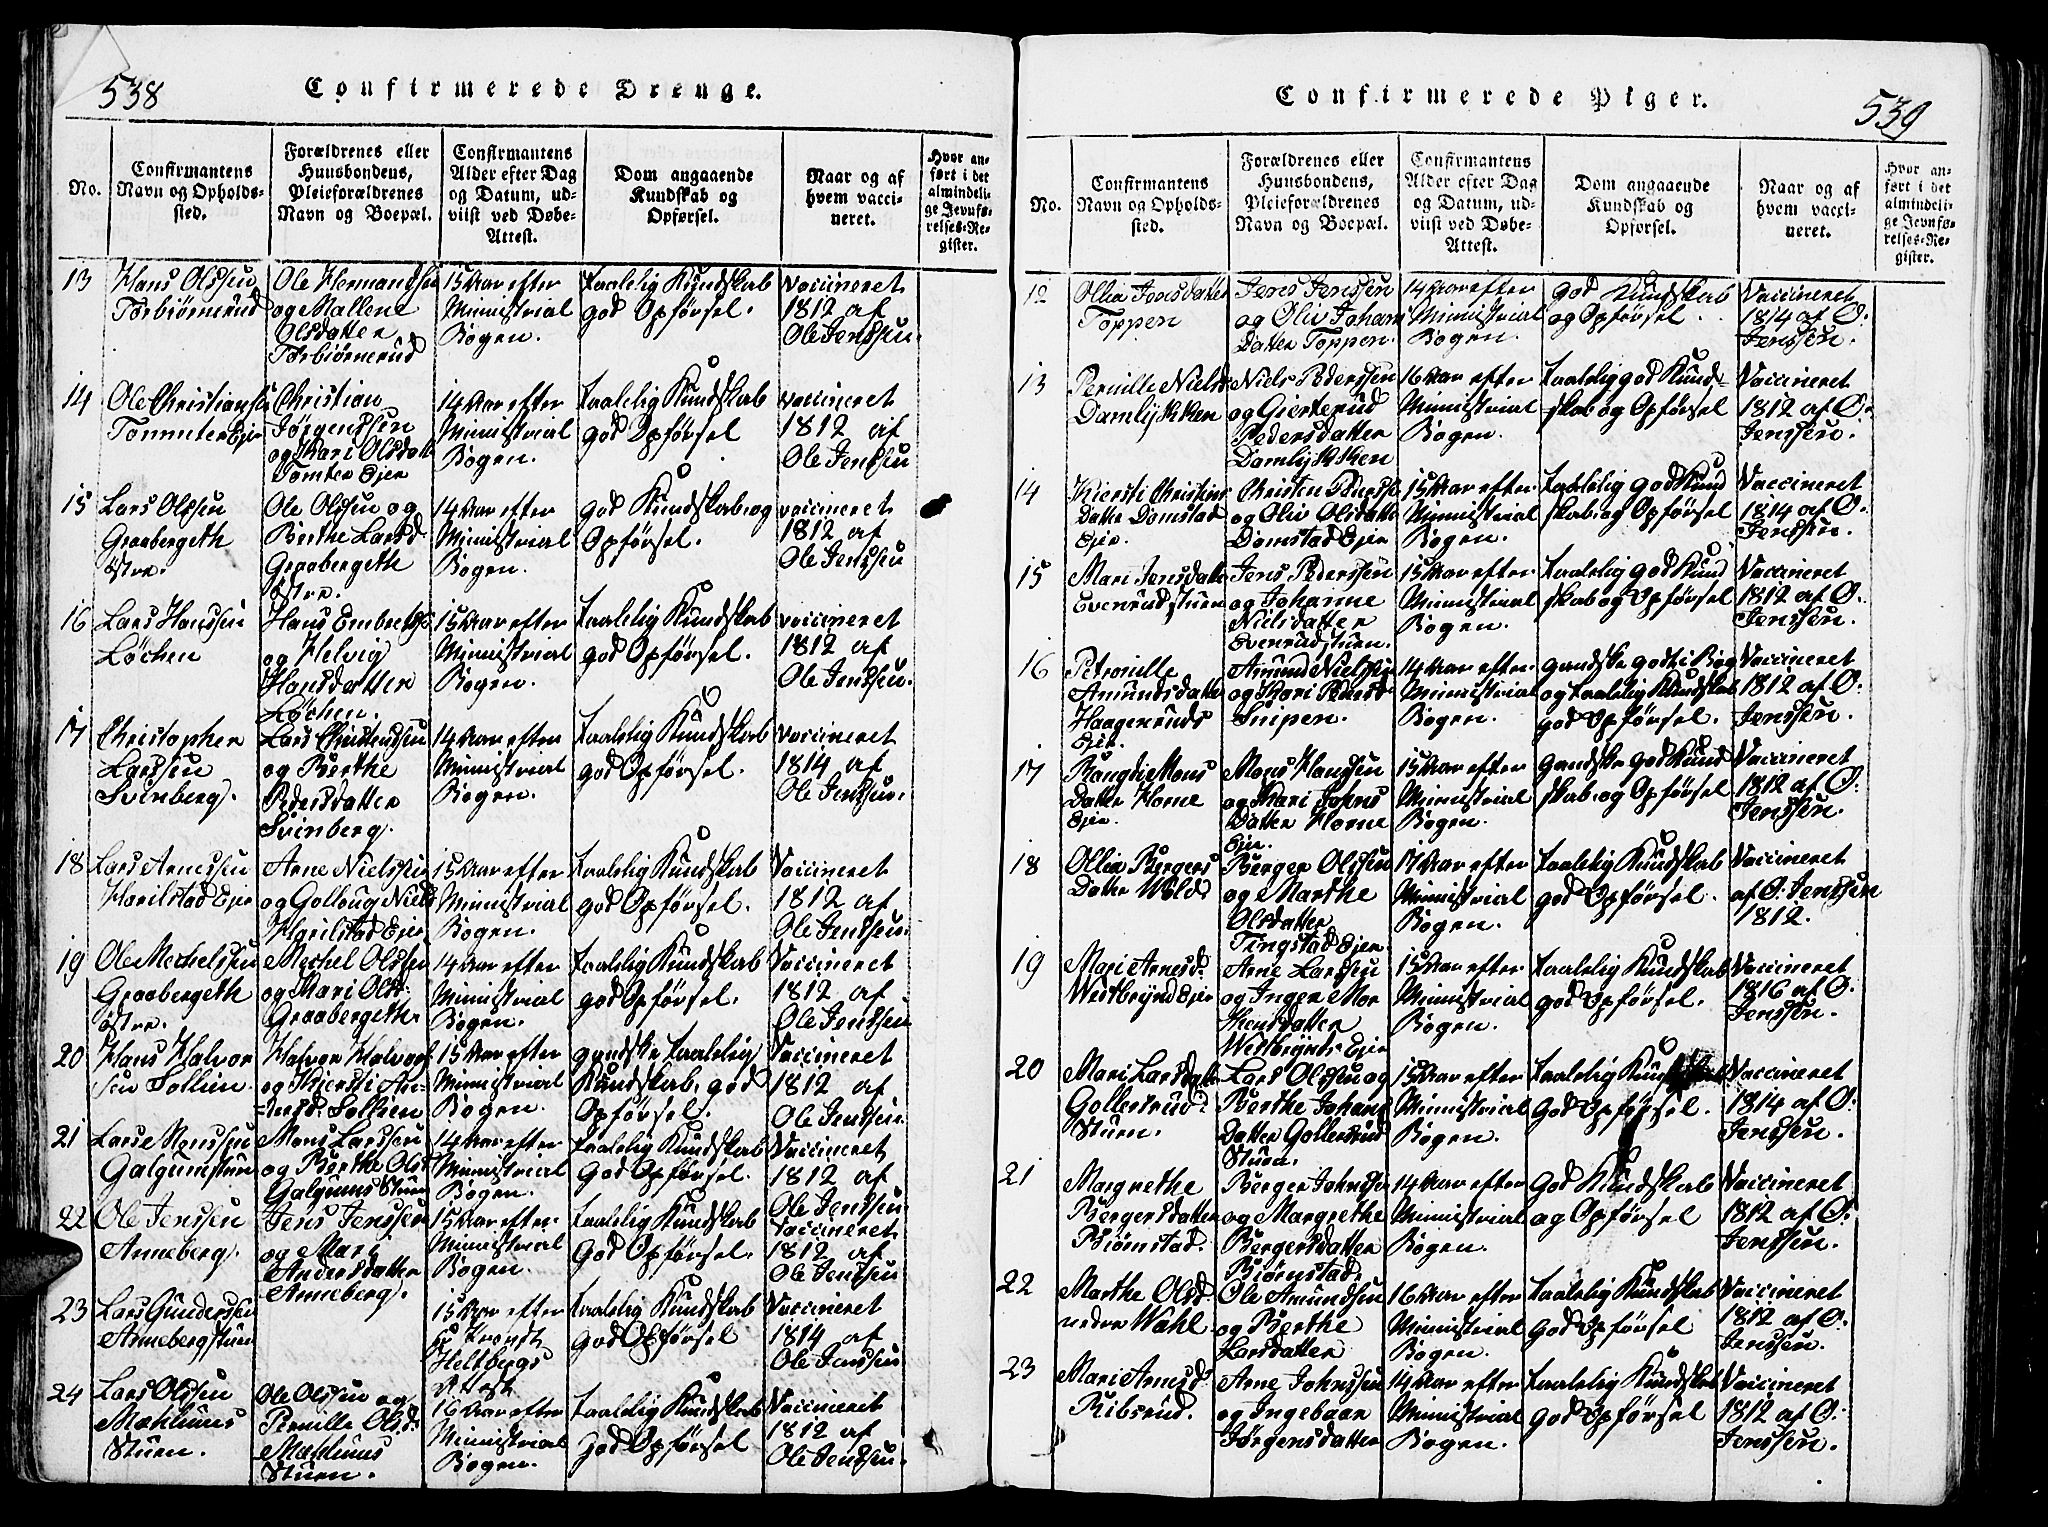 538
Confirmerede Drenge.
No.
Confirmantens Navn og Opholds-sted.
Forældrenes eller Huusbondens, Pleieforældrenes Navn og Boepæl.
Confirmantens Alder efter Dag og Datum, ud-viist ved Døbe-Attest.
Dom angaaende Kundskab og Opførsel.
Naar og af hvem vacci-neret.
Hvor an-ført i det almindeli-ge Jevnfø-relses-Re-gister.
13 Hans Olssen Torbiørnerud
Ole Hermandsen og Mallene Olsdatter Torbiørnerud
15 Aar efter Ministerial Bogen.
taalelig Kundskab god Opførsel.
vaccineret 1812 af Ole Jenssen.
14 Ole Christiansen Tomter Ejer
Christian Jørgenssen og Kari Olsdatt Tomter Ejer
14 Aar efter Ministrial Bogen.
taalelig Kundskab god Opførsel
vaccineret 1812 af Ole Jenssen
15 Lars Olssen Graabergeth østre.
Ole Olssen og Berthe Larsd Graabergeth østre.
14 Aar efter Ministrial Bogen.
god Kundskab og Opførsel.
vaccineret 1812 af Ole Jenssen
16 Lars Hanssen Løchen
Hans Embretss og Helvig Hansdatter Løchen.
15 Aar efter Ministrial Bogen.
taalelig Kundskab god Opførsel.
vaccineret 1812 af Ole Jenssen.
17 Christopher Larssen Svinberg.
Lars Christenssen og Berthe Pedersdatter Svinberg.
14 Aar efter Ministrial Bogen.
taalelig Kundskab god Opførsel.
Vaccineret 1814 af Ole Jenssen.
18 Lars Arnessen Horilstad Ejer
Arne Nielssen og Gollaug Niels Horilstad Ejer
15 Aar efter Ministrial Bogen.
taalelig Kundskab god Opførsel.
Vaccineret 1812 af Ole Jenssen.
19 Ole Mechelssen Graabergeth østre.
Mechel Olssen og Mari Olsd: Graabergeth.
14 Aar efter Ministrial Bogen.
taalelig Kundskab god Opførsel.
Vaccineret 1812 af Ole Jenssen
20 Hans Halvorsen Sollien.
Halvor Halvors og Kjersti Andersd. Sollien
15 Aar efter Ministrial Bogen.
gandske taalelig Kundskab, god Opførsel.
Vaccineret 1812 af Ole Jenssen.
21 Lars Monssen Galgumstuen
Mons Larssen og Berthe Olsd Galgums Stuen
14 Aar efter Ministrial Bogen.
taalelig Kundskab God Opførsel.
Vaccineret 1812 af Ole Jenssen.
22 Ole Jenssen Anneberg.
Jens Jenssen og Mari Andersdatter Anneberg.
15 Aar efter Ministrial Bogen.
taalelig Kundskab God Opførsel.
Vaccineret 1812 af Ole Jenssen
23 Lars Gunderssen Annebergstuen
15 Aar efter Heltbergs Attest
taalelig Kundskab God Opførsel
Vaccineret 1814 af Ole Jenssen
24 Lars Olssen Mæhlums Stuen.
Ole Olssen og Pernille Olsd: Mæhlums Stuen.
16 Aar efter Ministrial Bogen.
taalelig Kundskab God Opførsel.
Vaccineret 1812 af Ole Jenssen.
539
Confirmerede Piger.
No.
Confirmantens Navn og Opholds-sted.
Forældrenes eller Huusbondens, Pleieforældrenes Navn og Boepæl.
Confirmantens Alder efter Dag og Datum, ud-viist ved Døbe-Attest.
Dom angaaende Kundskab og Opførsel.
Naar og af hvem vacci-neret.
Hvor an-ført i det almindeli-ge Jevnfø-relses-Re-gister.
12 Ollia Jensdatter Toppen
Jens Jenssen og Oliv Johans Datter Toppen.
14 Aar efter Ministrial Bogen.
god Kundskab og Opførsel.
Vaccineret 1814 af O: Jenssen.
13 Pernille Nielsd Damlykken
Niels Pederssen og Gierterud Pedersdatter Damlykken
16 Aar efter Ministrial Bogen.
taalelig god Kundskab og Opførsel
Vaccineret 1812 af O: Jenssen.
14 Kiersti Christens Datter Domstad Ejer.
Christen Pederss og Oliv Olsdatter Domstad Ejer
15 Aar efter Ministrial Bogen.
taalelig god Kundskab og Opførsel
Vaccineret 1814 af O: Jenssen.
15 Mari Jensdatter Evenrudstuen
Jens Pederssen og Johanne Nielsdatter Evenrudstuen.
15 Aar efter Ministrial Bogen.
taalelig god Kundskab og Opførsel
Vaccineret 1812 af O: Jenssen.
16 Petronille Amundsdatter Haagenruds Ejer.
Amund Nielssen og Kari Pedersd Snipen.
14 Aar efter Ministrial Bogen.
gandske godt i Bog og taalelig Kundskab god Opførsel.
Vaccineret 1812 af O: Jenssen.
17 Rangdi Mons Datter Horne Ejer.
Mons Hanssen og Kari Johns Datter Horne Ejer.
15 Aar efter Ministrial Bogen.
gandske god Kundskab og Opførsel
Vaccineret 1812 af O: Jenssen.
18 Ollia Bergers Datter Wold
Berger Olssen og Marthe Olsdatter Tingstad Ejer
17 Aar efter Ministrial Bogen.
taalelig Kundskab god Opførsel.
Vaccineret af O: Jenssen 1812.
19 Mari Arnesd. Westbrynd Ejer
Arne Larssen og Inger Mortensdatter Westbrynds Ejer
15 Aar efter Ministrial Bogen.
taalelig Kundskab god Opførsel.
Vaccineret 1816 af O: Jenssen.
20 Mari Larsdatter Gollerrud Stuen.
Lars Olssen og Berthe Johans Datter Gollerrud Stuen.
15 Aar efter Ministrial Bogen.
taalelig Kundskab God Opførsel.
Vaccineret 1814 af O: Jenssen.
21 Margrethe Bergersdatter Biørnstad.
Berger Johnssen og Margrethe Bergersdatter Biørnstad.
14 Aar efter Ministrial Bogen.
God Kundskab og Opførsel
Vaccineret 1812 af O: Jenssen.
22 Marthe Olsd. nedre Wahl
Ole Amundsen og Berthe Larsdatter
16 Aar efter Ministrial Bogen.
taalelig Kundskab God Opførsel
Vaccineret 1812 af O: Jenssen.
23 Mari Arnesd Ribsrud.
Arne Johnssen og Ingebaar Jørgensdatter
14 Aar efter Ministrial Bogen.
taalelig Kundskab God Opførsel
Vaccineret 1812 af O: Jenssen.